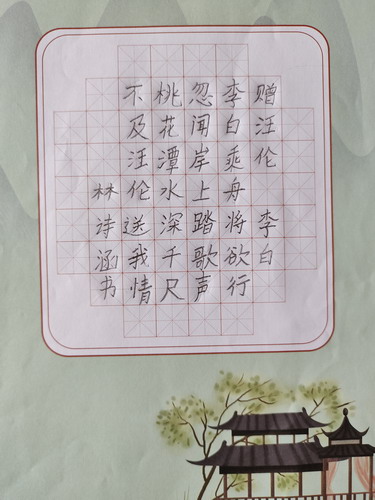 赠汪伦 李白
李白乘舟将欲行
忽闻岸上踏歌声
桃花潭水深千尺
不及汪伦送我情
林诗涵书